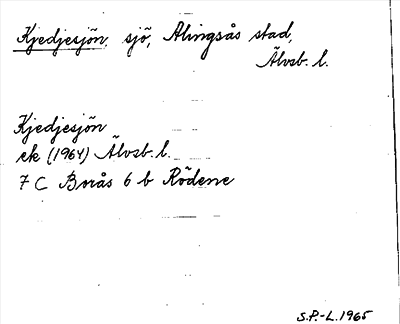 Kjedjesjön, sjö, Alingsås stad,
Älvsb. l.
Kjedjesjön
ek (1964) Älvsb. l.
7 C Borås 6 b Rödene
S.P.-L. 1965